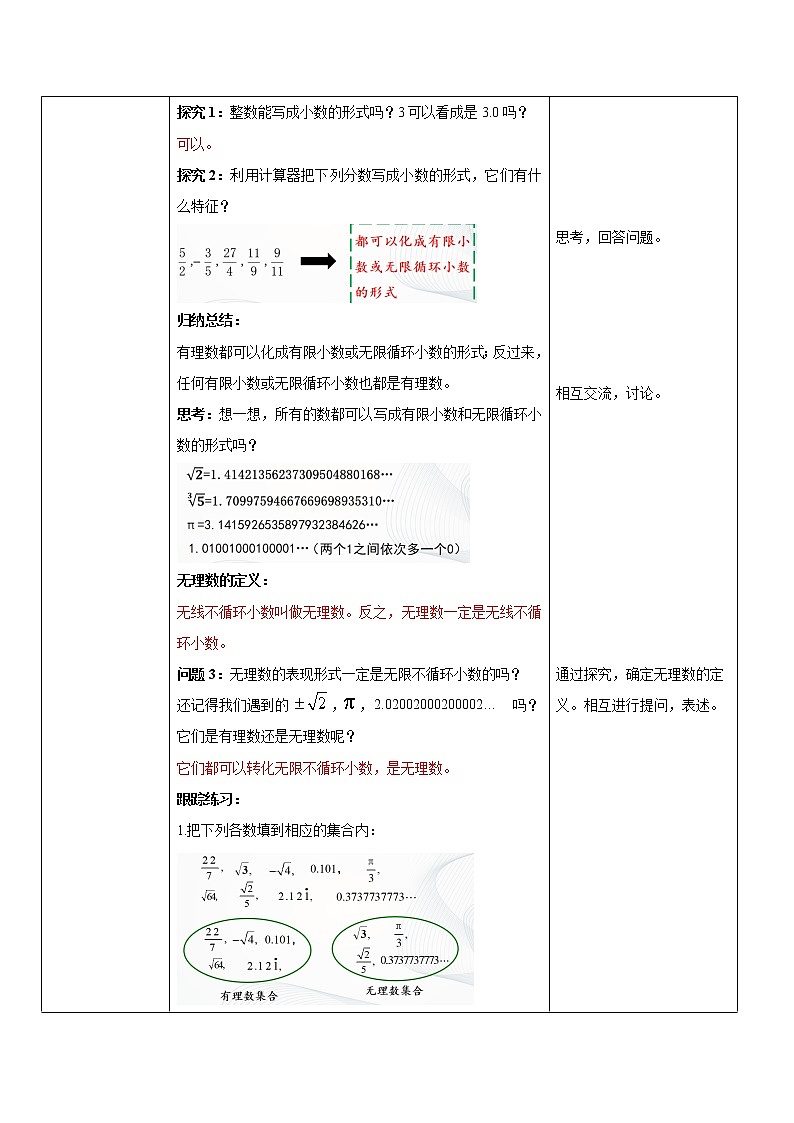 探究 1：整数能写成小数的形式吗？3 可以看成是 3.0 吗？
可以。
探究 2：利用计算器把下列分数写成小数的形式，它们有什
么特征？
5/2 ,-3/5 ,27/4 ,11/9 ,9/11
都可以化成有限小
数或无限循环小数
的形式
思考，回答问题。
归纳总结：
有理数都可以化成有限小数或无限循环小数的形式；反过来，
任何有限小数或无限循环小数也都是有理数。
相互交流，讨论。
思考：想一想，所有的数都可以写成有限小数和无限循环小
数的形式吗？
√2=1.41421356237309504880168…
∛5=1.70997594667669698935310…
π=3.1415926535897932384626…
1.01001000100001…（两个1之间依次多一个0）
无理数的定义：
无线不循环小数叫做无理数。反之，无理数一定是无线不循
环小数。
问题 3：无理数的表现形式一定是无限不循环小数的吗？
还记得我们遇到的 ±√2，π，2.02002000200002… 吗？
它们是有理数还是无理数呢？
它们都可以转化无限不循环小数，是无理数。
通过探究，确定无理数的定
义。相互进行提问，表述。
跟踪练习：
1.把下列各数填到相应的集合内：
22/7, √3, −√4, 0.101, π/3,
√64, √2/5, 2.121̇, 0.3737737773…
22/7, −√4, 0.101,
√64, 2.121̇,
有理数集合
√3, π/3,
√2/5, 0.3737737773…
无理数集合